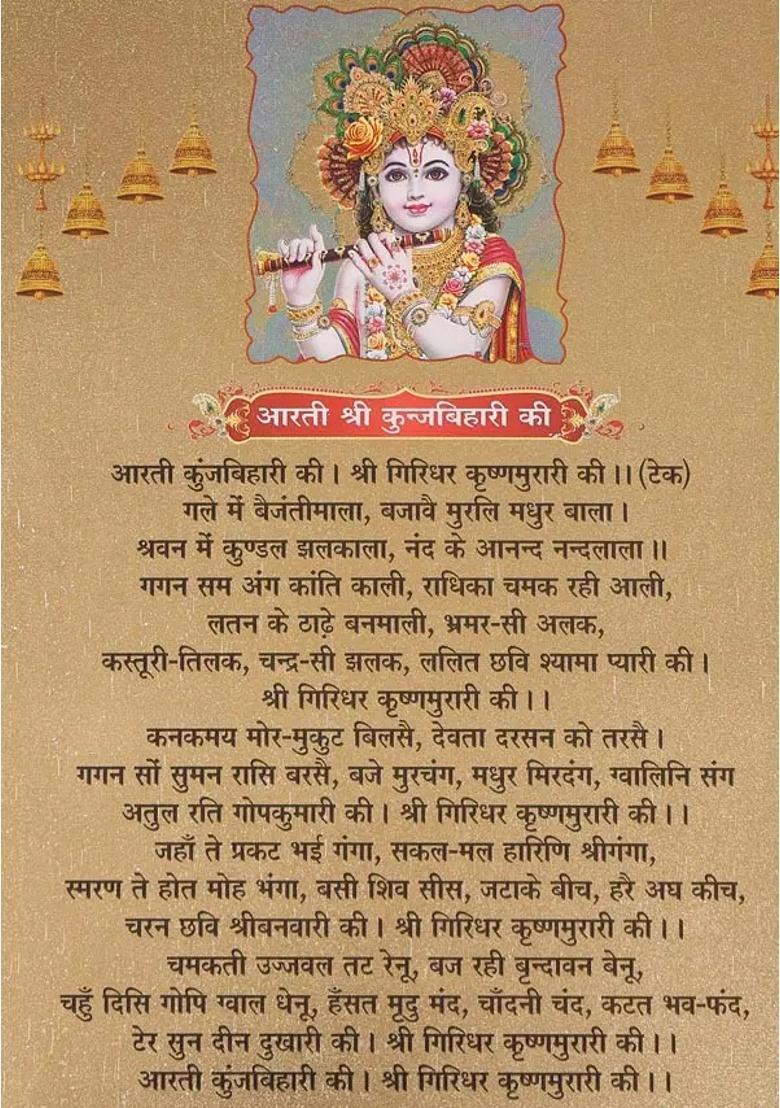 आरती श्री कुन्जबिहारी की
आरती कुंजबिहारी की। श्री गिरिधर कृष्णमुरारी की।। (टेक)
गले में बैजंतीमाला, बजावै मुरलि मधुर बाला।
श्रवन में कुण्डल झलकाला, नंद के आनन्द नन्दलाला॥
गगन सम अंग कांति काली, राधिका चमक रही आली,
लतन के ठाढ़े बनमाली, भ्रमर-सी अलक,
कस्तूरी-तिलक, चन्द्र-सी झलक, ललित छवि श्यामा प्यारी की।
श्री गिरिधर कृष्णमुरारी की।।
कनकमय मोर-मुकुट बिलसै, देवता दरसन को तरसै।
गगन सों सुमन रासि बरसै, बजे मुरचंग, मधुर मिरदंग, ग्वालिनि संग
अतुल रति गोपकुमारी की। श्री गिरिधर कृष्णमुरारी की।।
जहाँ ते प्रकट भई गंगा, सकल-मल हारिणि श्रीगंगा,
स्मरण ते होत मोह भंगा, बसी शिव सीस, जटाके बीच, हरै अघ कीच,
चरन छवि श्रीबनवारी की। श्री गिरिधर कृष्णमुरारी की।।
चमकती उज्जवल तट रेनू, बज रही बृन्दावन बेनू,
चहुँ दिसि गोपि ग्वाल धेनू, हँसत मृदु मंद, चाँदनी चंद, कटत भव-फंद,
टेर सुन दीन दुखारी की। श्री गिरिधर कृष्णमुरारी की।।
आरती कुंजबिहारी की। श्री गिरिधर कृष्णमुरारी की।।